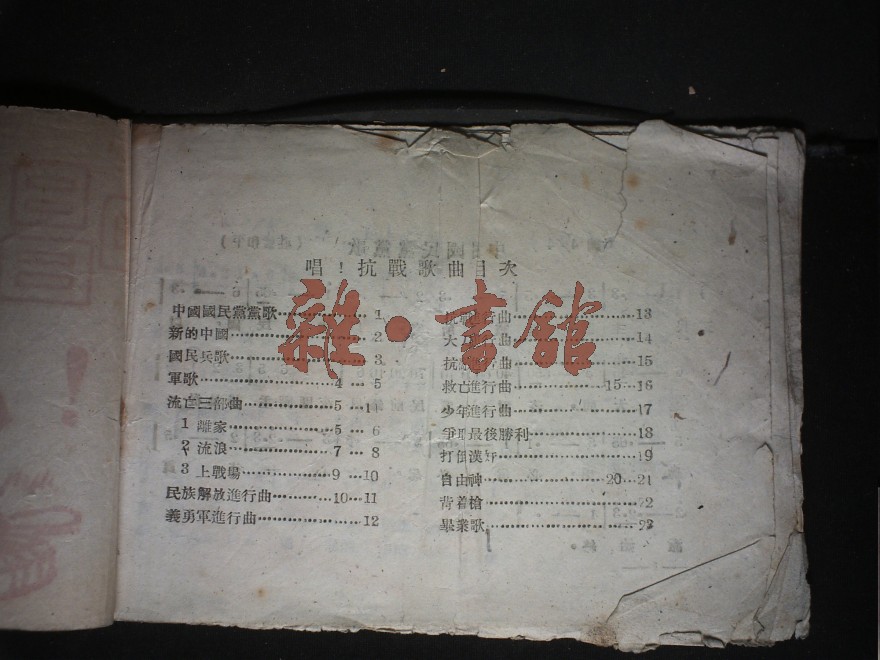 唱！抗戰歌曲目次
中國國民黨黨歌 1
新的中國 2
國民兵歌 3
軍歌 4…5
流亡三部曲 5…11
1 離家 5…6
2 流浪 7…8
3 上戰場 9…10
民族解放進行曲 10…11
義勇軍進行曲 12
曲 13
大 曲 14
抗 曲 15
救亡進行曲 15…16
少年進行曲 17
爭取最後勝利 18
打倒漢奸 19
自由神 20…21
背着槍 22
畢業歌 23
雜·書館